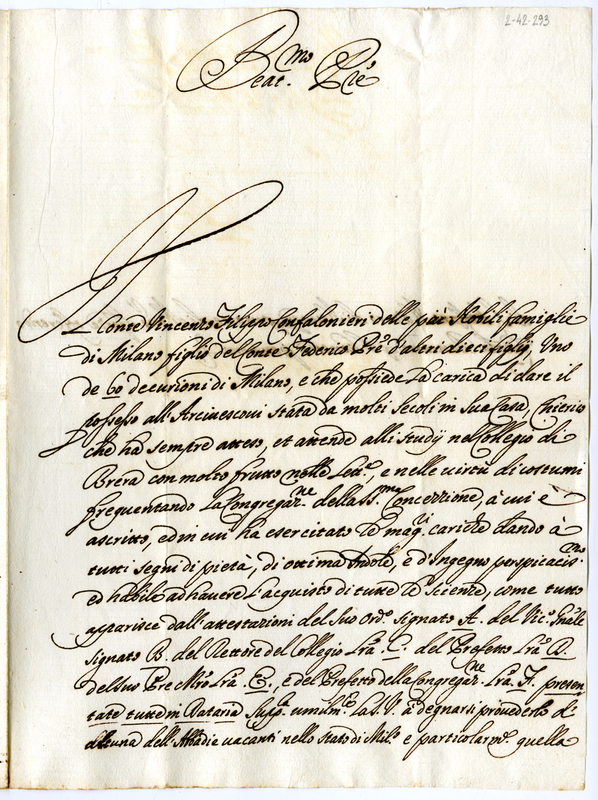 2-42-293
Beat.mo Pre
Il Conte Vincenzo Filippo Confalonieri delle più Nobili famiglie
di Milano figlio del Conte Federico Pre d'altri dieci figlij, Uno
de 60 decurioni di Milano, e che possiede la carica di dare il
possesso all'Arcivescovi stata da molti secoli in sua Casa, Chierico
che ha sempre atteso, et attende alli studij nel Collegio di
Brera con molto frutto nelle Lett.e, e nelle virtù di costumi
frequentando la Congregaz.ne della SS.ma Concezzione, à cui è
ascritto, ed in cui ha esercitato le mag.ri cariche dando à
tutti segni di pietà, di ottima Indole, e d'Ingegno perspicaciss.mo
ed habile ad havere l'acquisto di tutte le scienze, come tutto
apparisce dall'attestazioni del suo Ord.o signato A. del Vic.o Gnale
signato B. del Rettore del Collegio Lra C. del Prefetto Lra D.
del suo Pre Mro Lra E., e del Prefetto della Congregaz.ne Lra F. presen
tate tutte in Dataria Supp.a umilm.te la S. V. à degnarsi provederlo d'
alcuna dell'Abbadie vacanti nello stato di Mil.o e particolarm.te quella